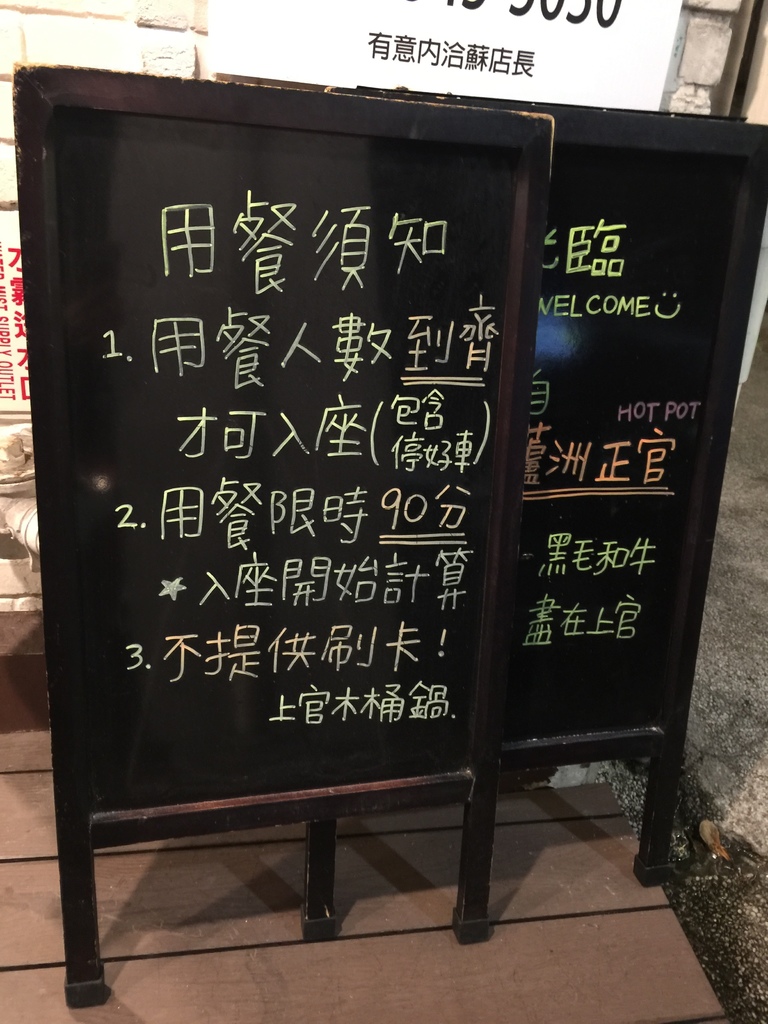 有意內洽蘇店長
用餐須知
1. 用餐人數到齊
才可入座(包含停好車)
2. 用餐限時90分
★入座開始計算
3. 不提供刷卡!
上官木桶鍋.
臨
WELCOME
自
HOT POT
蘆洲正官
黑毛和牛
盡在上官
WATER MIST SUPPLY OUTLET